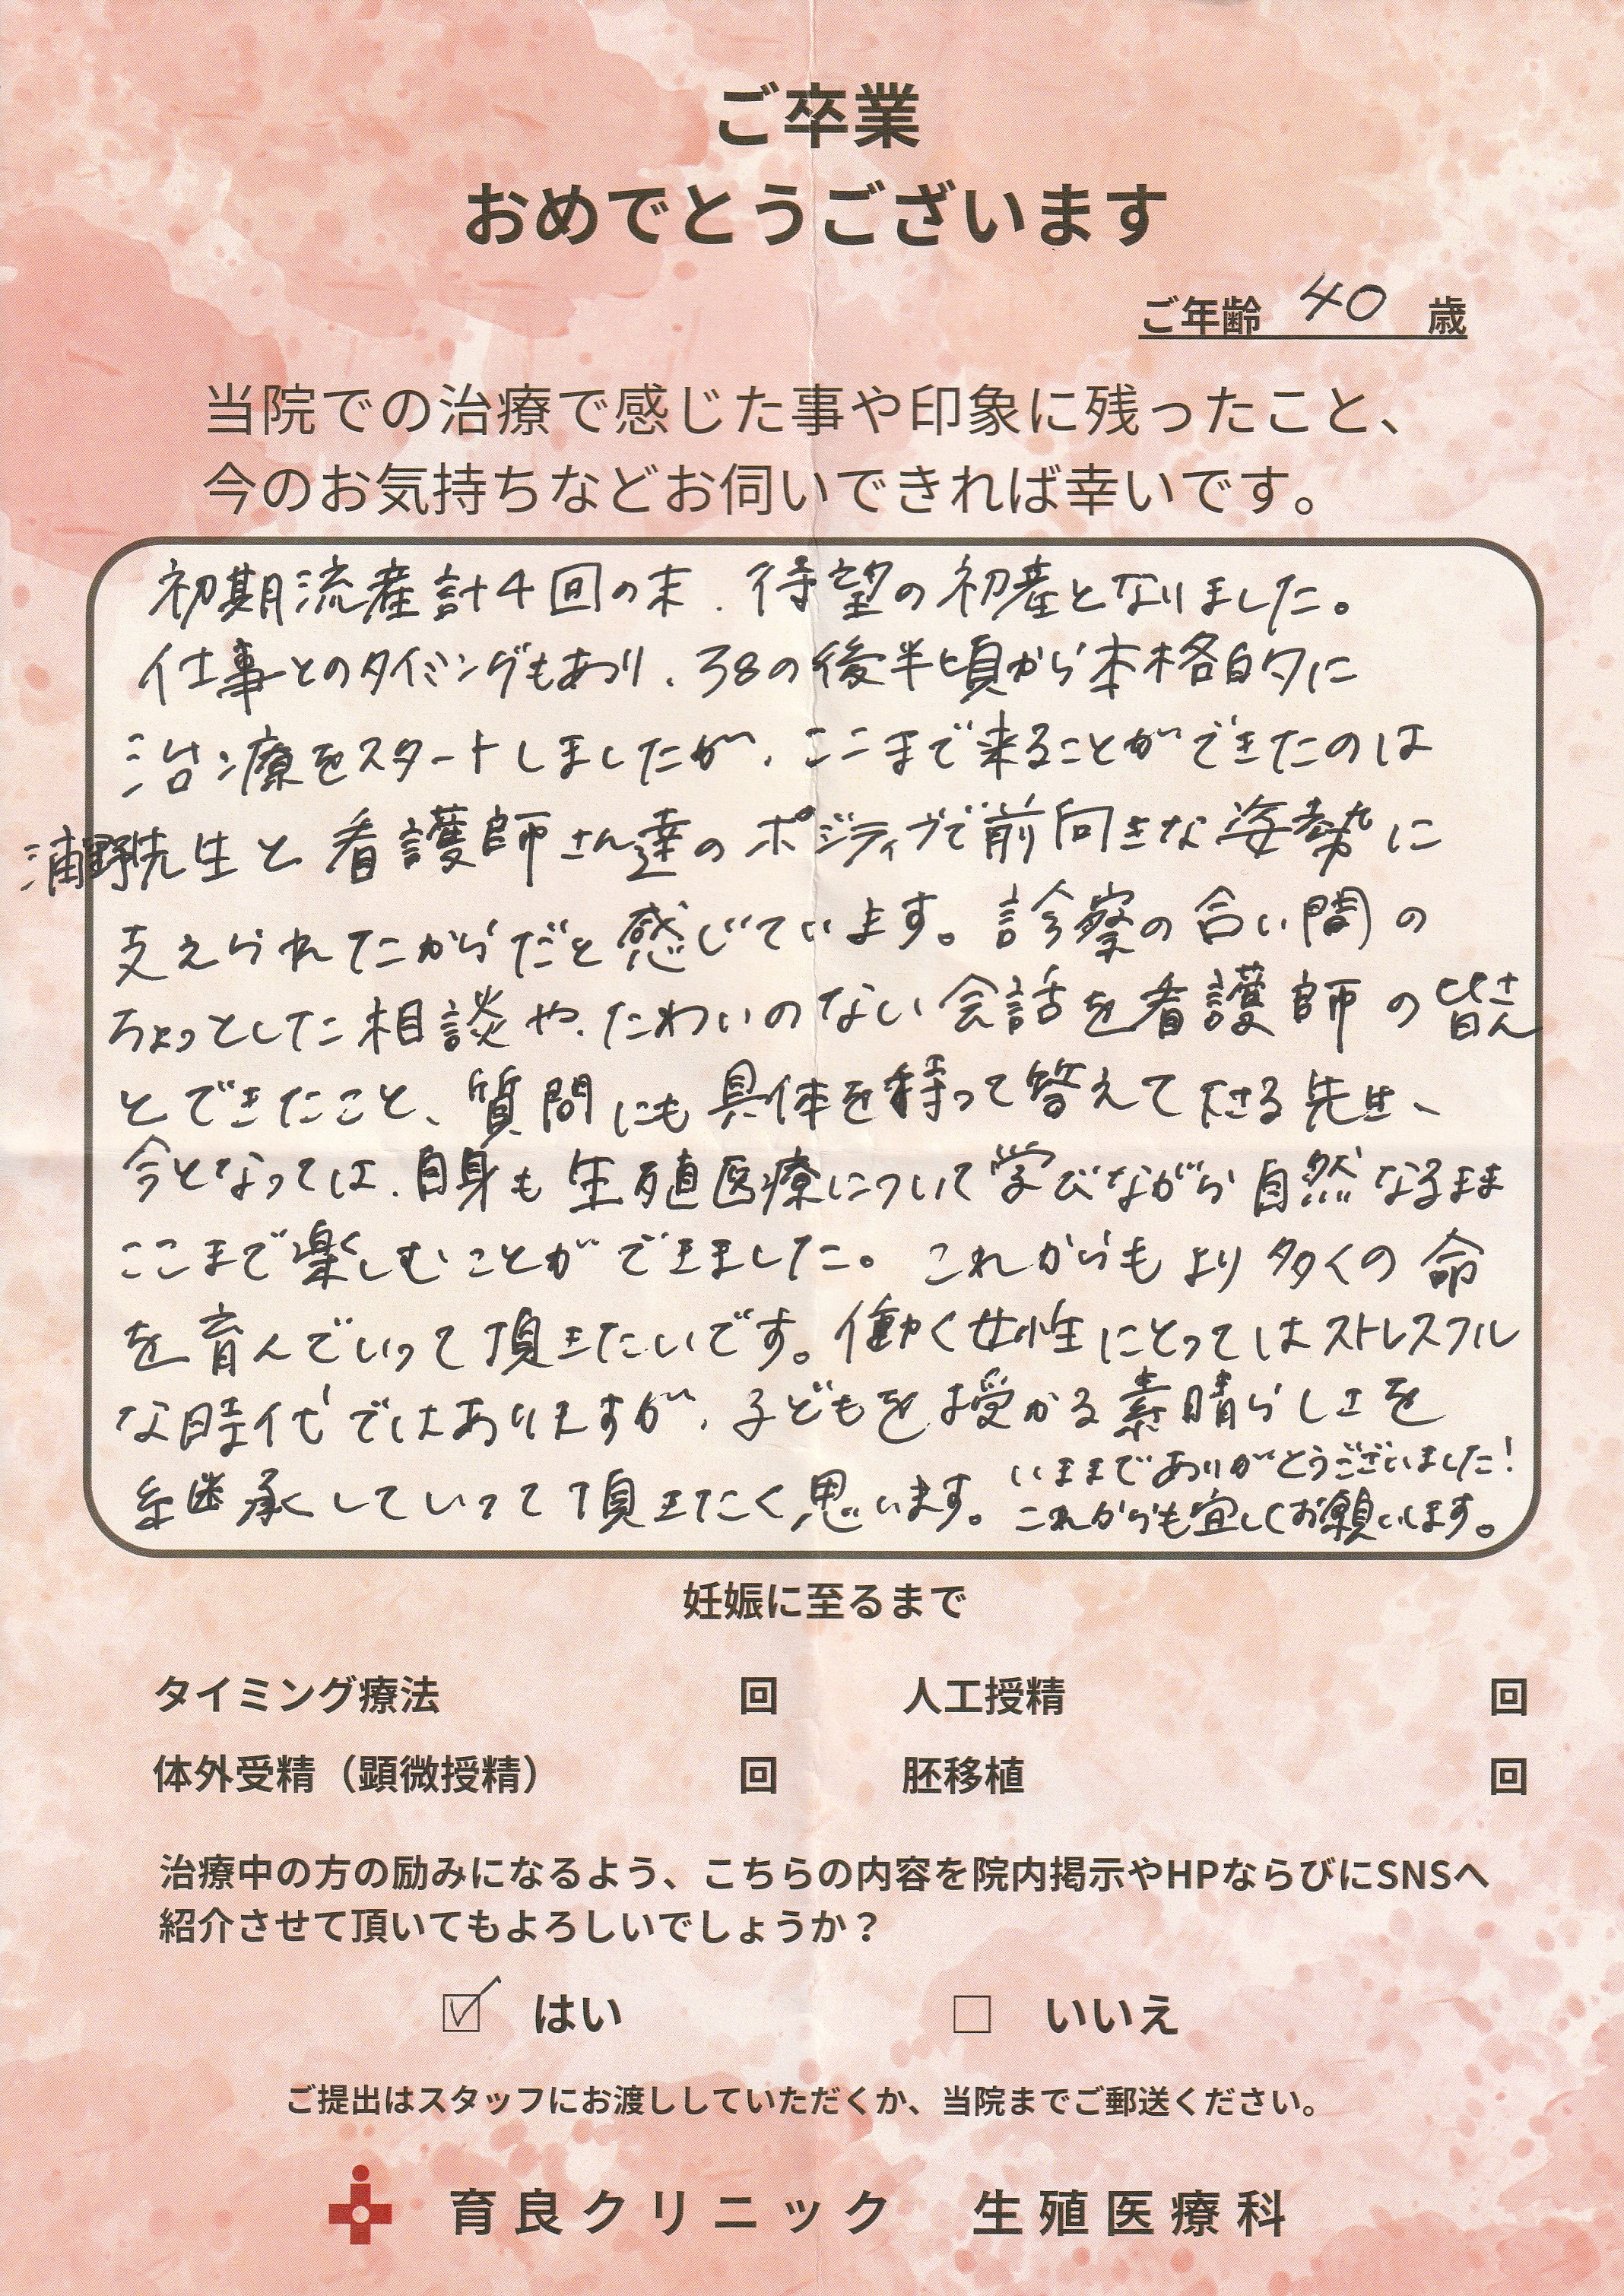 ご卒業
おめでとうございます
ご年齢 40 歳
当院での治療で感じた事や印象に残ったこと、
今のお気持ちなどお伺いできれば幸いです。
初期流産計4回の末、待望の初産となりました。
仕事とのタイミングもあり、38の後半頃から本格的に
治療をスタートしましたが、ここまで来ることができたのは
浦野先生と看護師さん達のポジティブで前向きな姿勢に
支えられたからだと感じています。診察の合い間の
ちょっとした相談や、たわいのない会話を看護師の皆さん
とできたこと、質問にも具体を持って答えて下さる先生、
今となっては、自身も生殖医療について学びながら自然なるまま
ここまで楽しむことができました。これからもより多くの命
を育んでいって頂きたいです。働く女性にとってはストレスフル
な時代ではありますが、子どもを授かる素晴らしさを
継承していって頂きたく思います。いままでありがとうございました!
これからも宜しくお願いします。
妊娠に至るまで
タイミング療法 回 人工授精 回
体外受精（顕微授精） 回 胚移植 回
治療中の方の励みになるよう、こちらの内容を院内掲示やHPならびにSNSへ
紹介させて頂いてもよろしいでしょうか？
☑ はい □ いいえ
ご提出はスタッフにお渡ししていただくか、当院までご郵送ください。
育良クリニック 生殖医療科